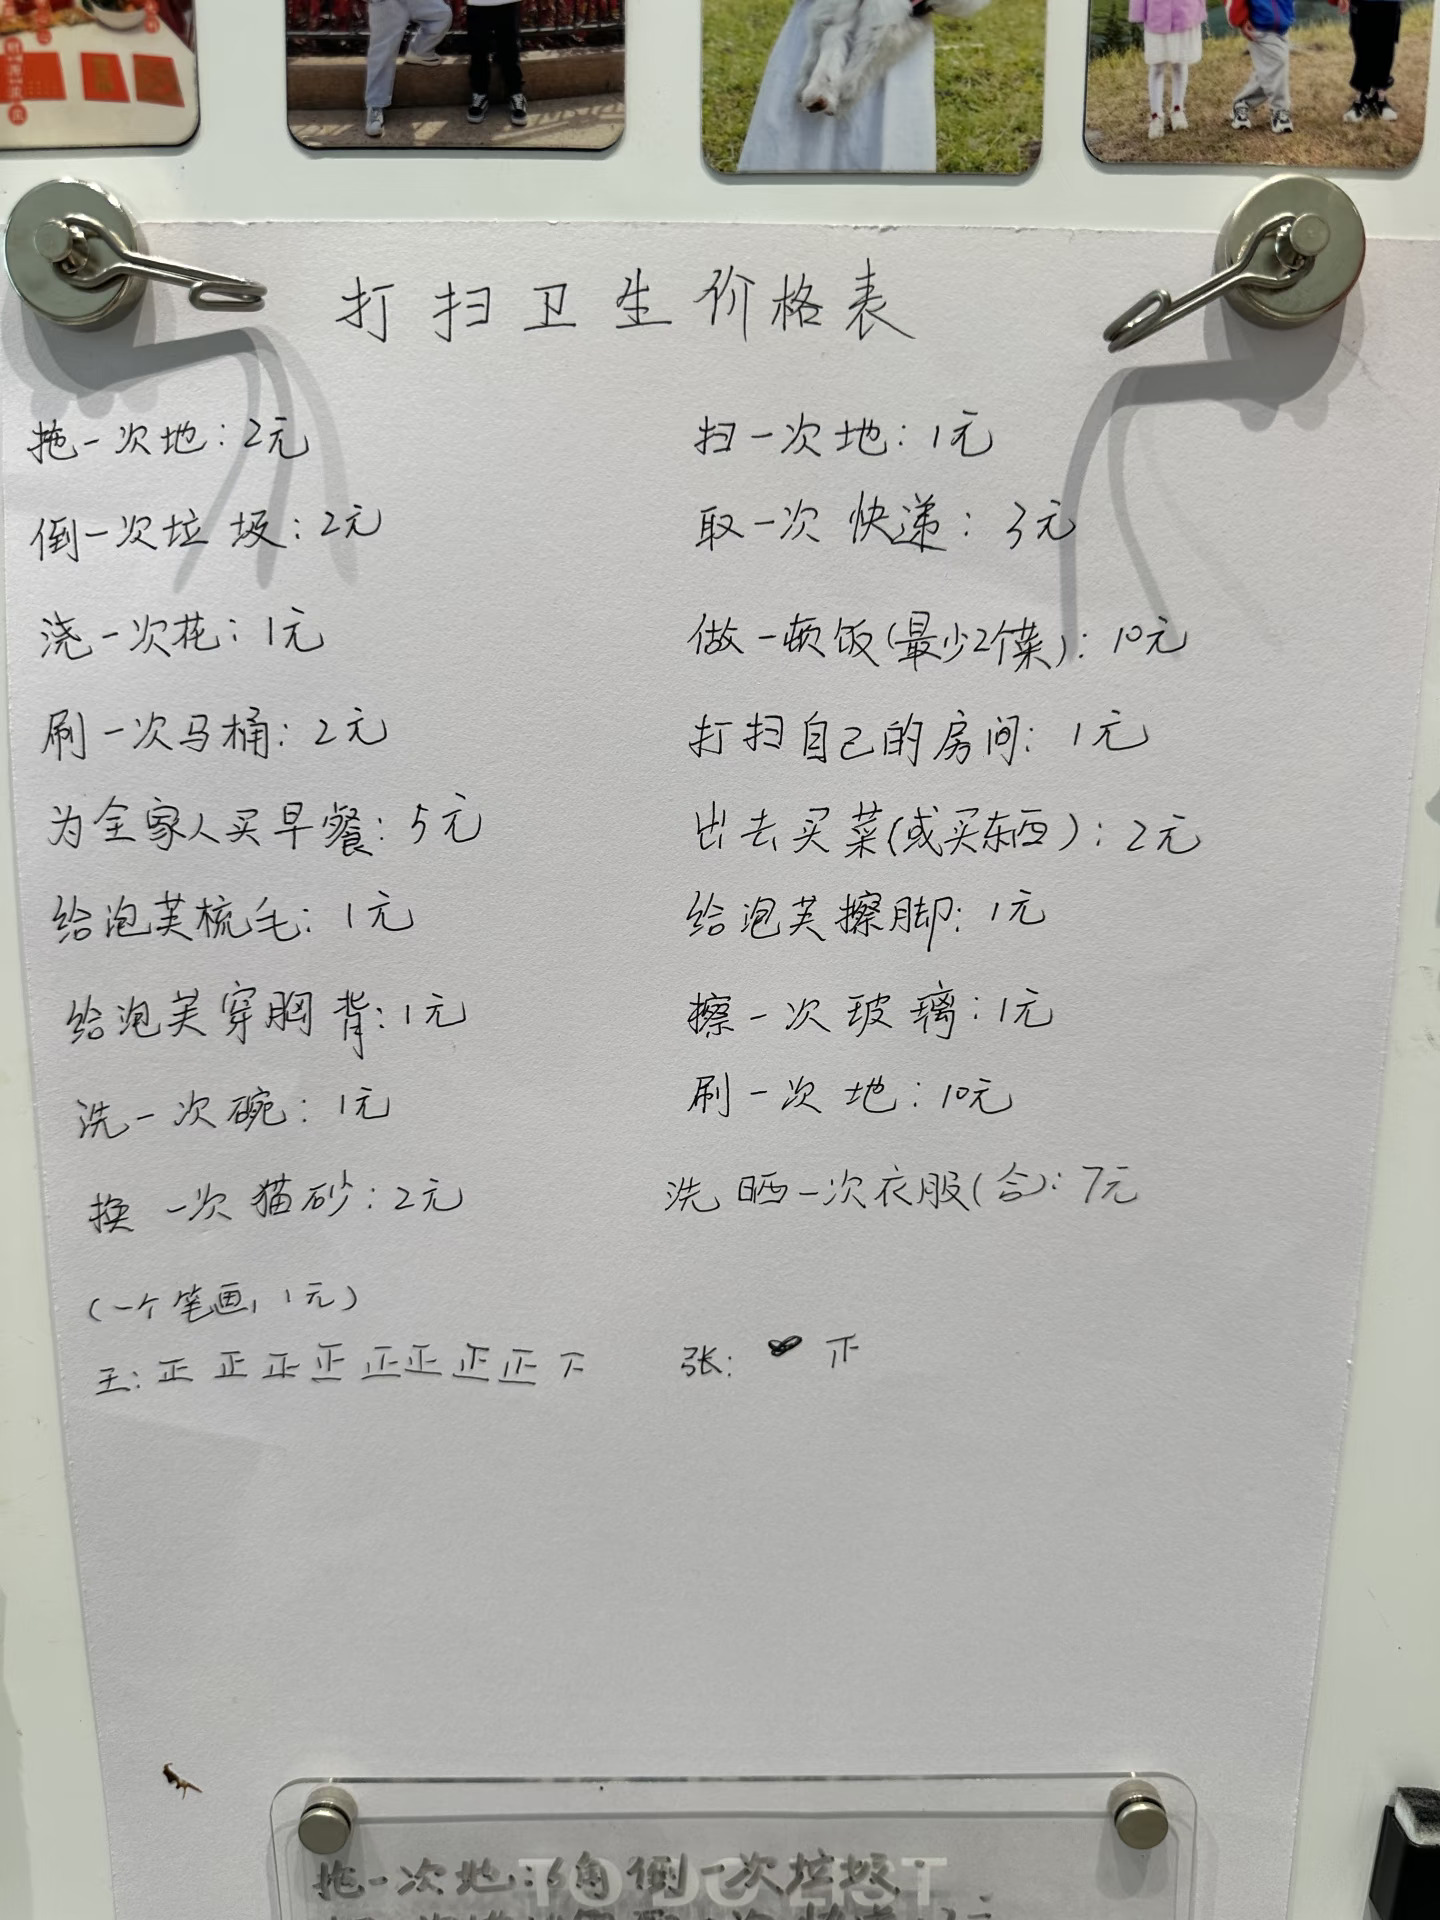 打扫卫生价格表
拖一次地：2元
扫一次地：1元
倒一次垃圾：2元
取一次快递：3元
浇一次花：1元
做一顿饭(最少2个菜)：10元
刷一次马桶：2元
打扫自己的房间：1元
为全家人买早餐：5元
出去买菜(或买东西)：2元
给泡芙梳毛：1元
给泡芙擦脚：1元
给泡芙穿胸背：1元
擦一次玻璃：1元
洗一次碗：1元
刷一次地：10元
换一次猫砂：2元
洗晒一次衣服(合)：7元
(一个笔画，1元)
王：正正正正正正正正下
张：正
TO DO LIST
拖一次地：6角 倒一次垃圾：